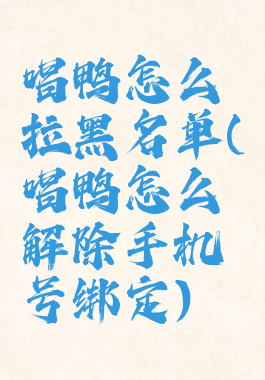 唱鸭怎么
拉黑名单(
唱鸭怎么
解除手机
号绑定)